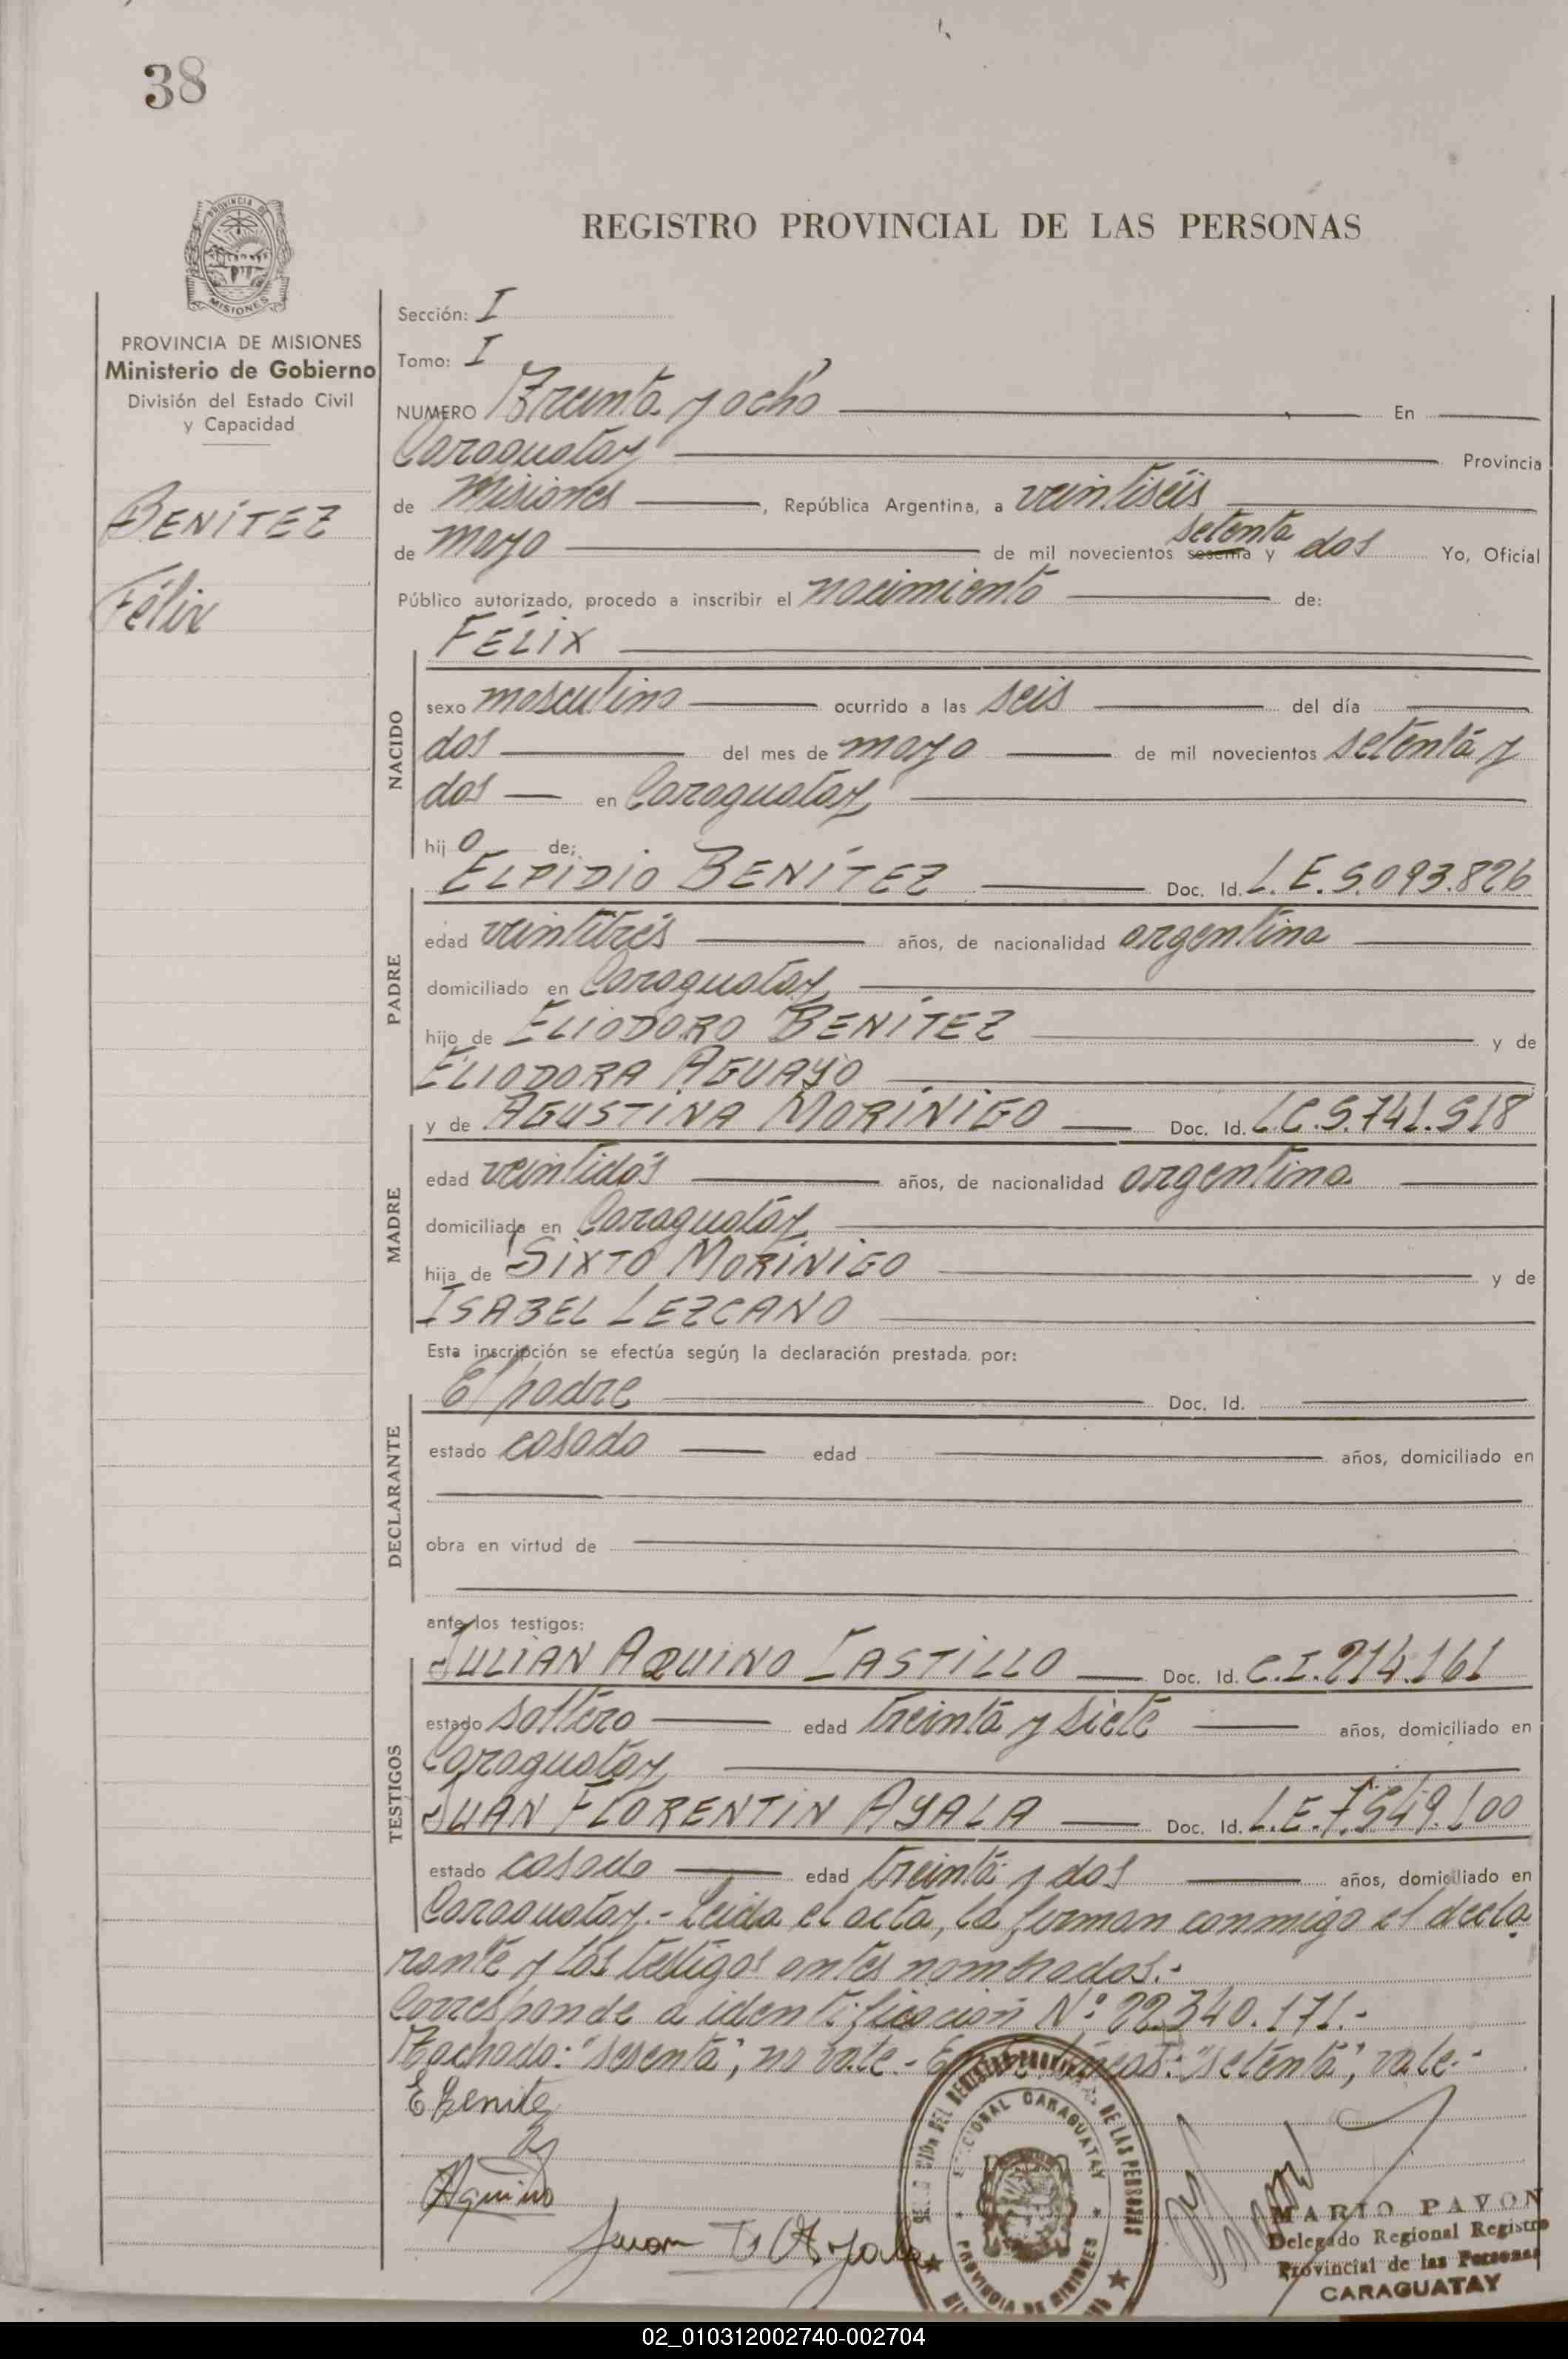 38
REGISTRO PROVINCIAL DE LAS PERSONAS
PROVINCIA DE MISIONES
Ministerio de Gobierno
División del Estado Civil
y Capacidad
BENÍTEZ
Félix
Sección: I
Tomo: I
NUMERO Treinta y ocho En
Caraguatay Provincia
de Misiones, República Argentina, a veintiséis
de mayo de mil novecientos sesenta setenta y dos Yo, Oficial
Público autorizado, procedo a inscribir el nacimiento de:
NACIDO
FÉLIX
sexo masculino ocurrido a las seis del día
dos del mes de mayo de mil novecientos setenta y
dos en Caraguatay
hijo de:
PADRE
ELPIDIO BENÍTEZ Doc. Id. L.E. 5.093.826
edad veintitrés años, de nacionalidad argentina
domiciliado en Caraguatay
hijo de ELIODORO BENÍTEZ y de
ELIODORA AGUAYO
MADRE
y de AGUSTINA MORÍNIGO Doc. Id. L.C. 5.741.518
edad veintidós años, de nacionalidad argentina
domiciliada en Caraguatay
hija de SIXTO MORÍNIGO y de
ISABEL LEZCANO
Esta inscripción se efectúa según la declaración prestada por:
DECLARANTE
El padre Doc. Id.
estado casado edad años, domiciliado en
obra en virtud de
ante los testigos:
TESTIGOS
JULIAN AQUINO CASTILLO Doc. Id. C.I. 214.161
estado soltero edad treinta y siete años, domiciliado en
Caraguatay
JUAN FLORENTIN AYALA Doc. Id. L.E. 7.549.100
estado casado edad treinta y dos años, domiciliado en
Caraguatay.- Leida el acta, la firman conmigo el decla
rante y los testigos antes nombrados.-
Corresponde a identificación Nº 22.340.171.-
Tachado: "sesenta", no vale.- Entre líneas: "setenta", vale.-
E Benitez
Aquino
Juan F Ayala
DEL REGISTRO PROVINCIAL DE LAS PERSONAS
CARAGUATAY
PROVINCIA DE MISIONES
MARIO PAVON
Delegado Regional Registro
Provincial de las Personas
CARAGUATAY
02_010312002740-002704